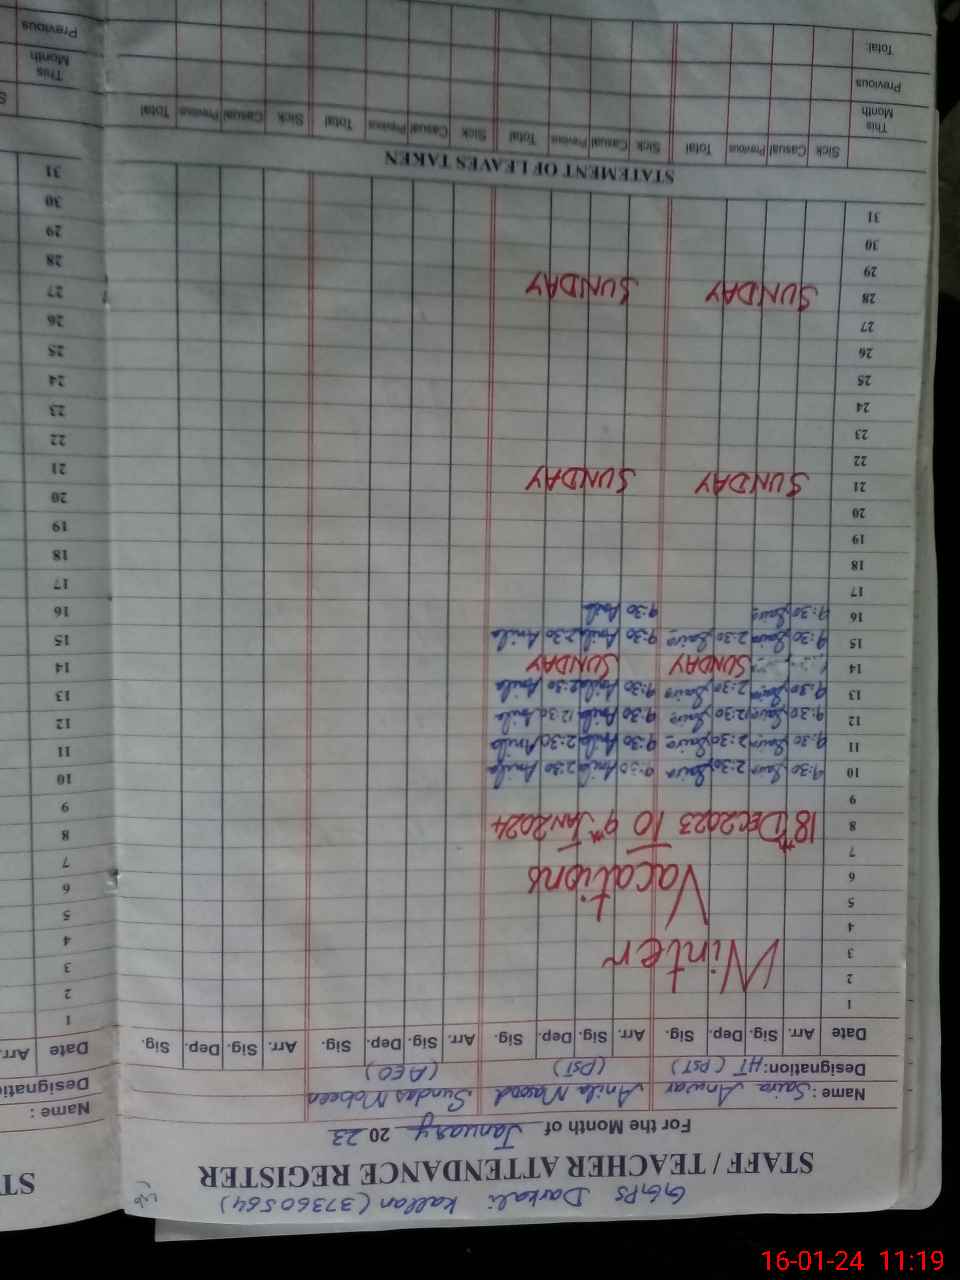 GGPS Darkali Kallan (37360564)
STAFF / TEACHER ATTENDANCE REGISTER
For the Month of January 2023
Name: Saira Anwar Anila Masood Sundas Mobeen
Designation: HT (PST) (PST) (AEO)
Date Arr. Sig. Dep. Sig. Arr. Sig. Dep. Sig. Arr. Sig. Dep. Sig. Arr. Sig. Dep. Sig.
1
2
3 Winter
4
5
6 Vacations
7
8 18th DEC 2023 TO 9th JAN 2024
9
10 9:30 Saira 2:30 Saira 9:30 Anila 2:30 Anila
11 9:30 Saira 2:30 Saira 9:30 Anila 2:30 Anila
12 9:30 Saira 12:30 Saira 9:30 Anila 12:30 Anila
13 9:30 Saira 2:30 Saira 9:30 Anila 2:30 Anila
14 SUNDAY SUNDAY
15 9:30 Saira 2:30 Saira 9:30 Anila 2:30 Anila
16 9:30 Saira 9:30 Anila
17
18
19
20
21 SUNDAY SUNDAY
22
23
24
25
26
27
28 SUNDAY SUNDAY
29
30
31
STATEMENT OF LEAVES TAKEN
Sick Casual Previous Total Sick Casual Previous Total Sick Casual Previous Total Sick Casual Previous Total
This Month
Previous
Total:
ST
Name :
Designatio
Date Arr.
1
2
3
4
5
6
7
8
9
10
11
12
13
14
15
16
17
18
19
20
21
22
23
24
25
26
27
28
29
30
31
S
This Month
Previous
16-01-24 11:19